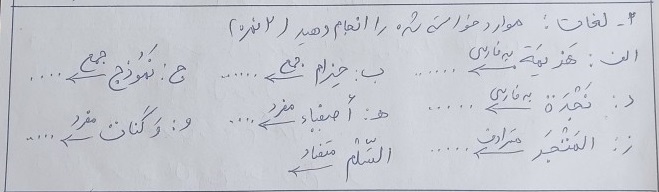 ۳- لغات: موارد خواسته شده را انجام دهید (۲ نمره)
الف: هَزیمَة به فارسی ...... ب: حِزام جمع ...... ج: نَمُوذَج جمع .....
د: نَجْدَة به فارسی ...... هـ: أصفیاء مفرد ..... و: وَکَنات مفرد .....
ز: المَتْجَر مترادف ...... السِّلْم متضاد